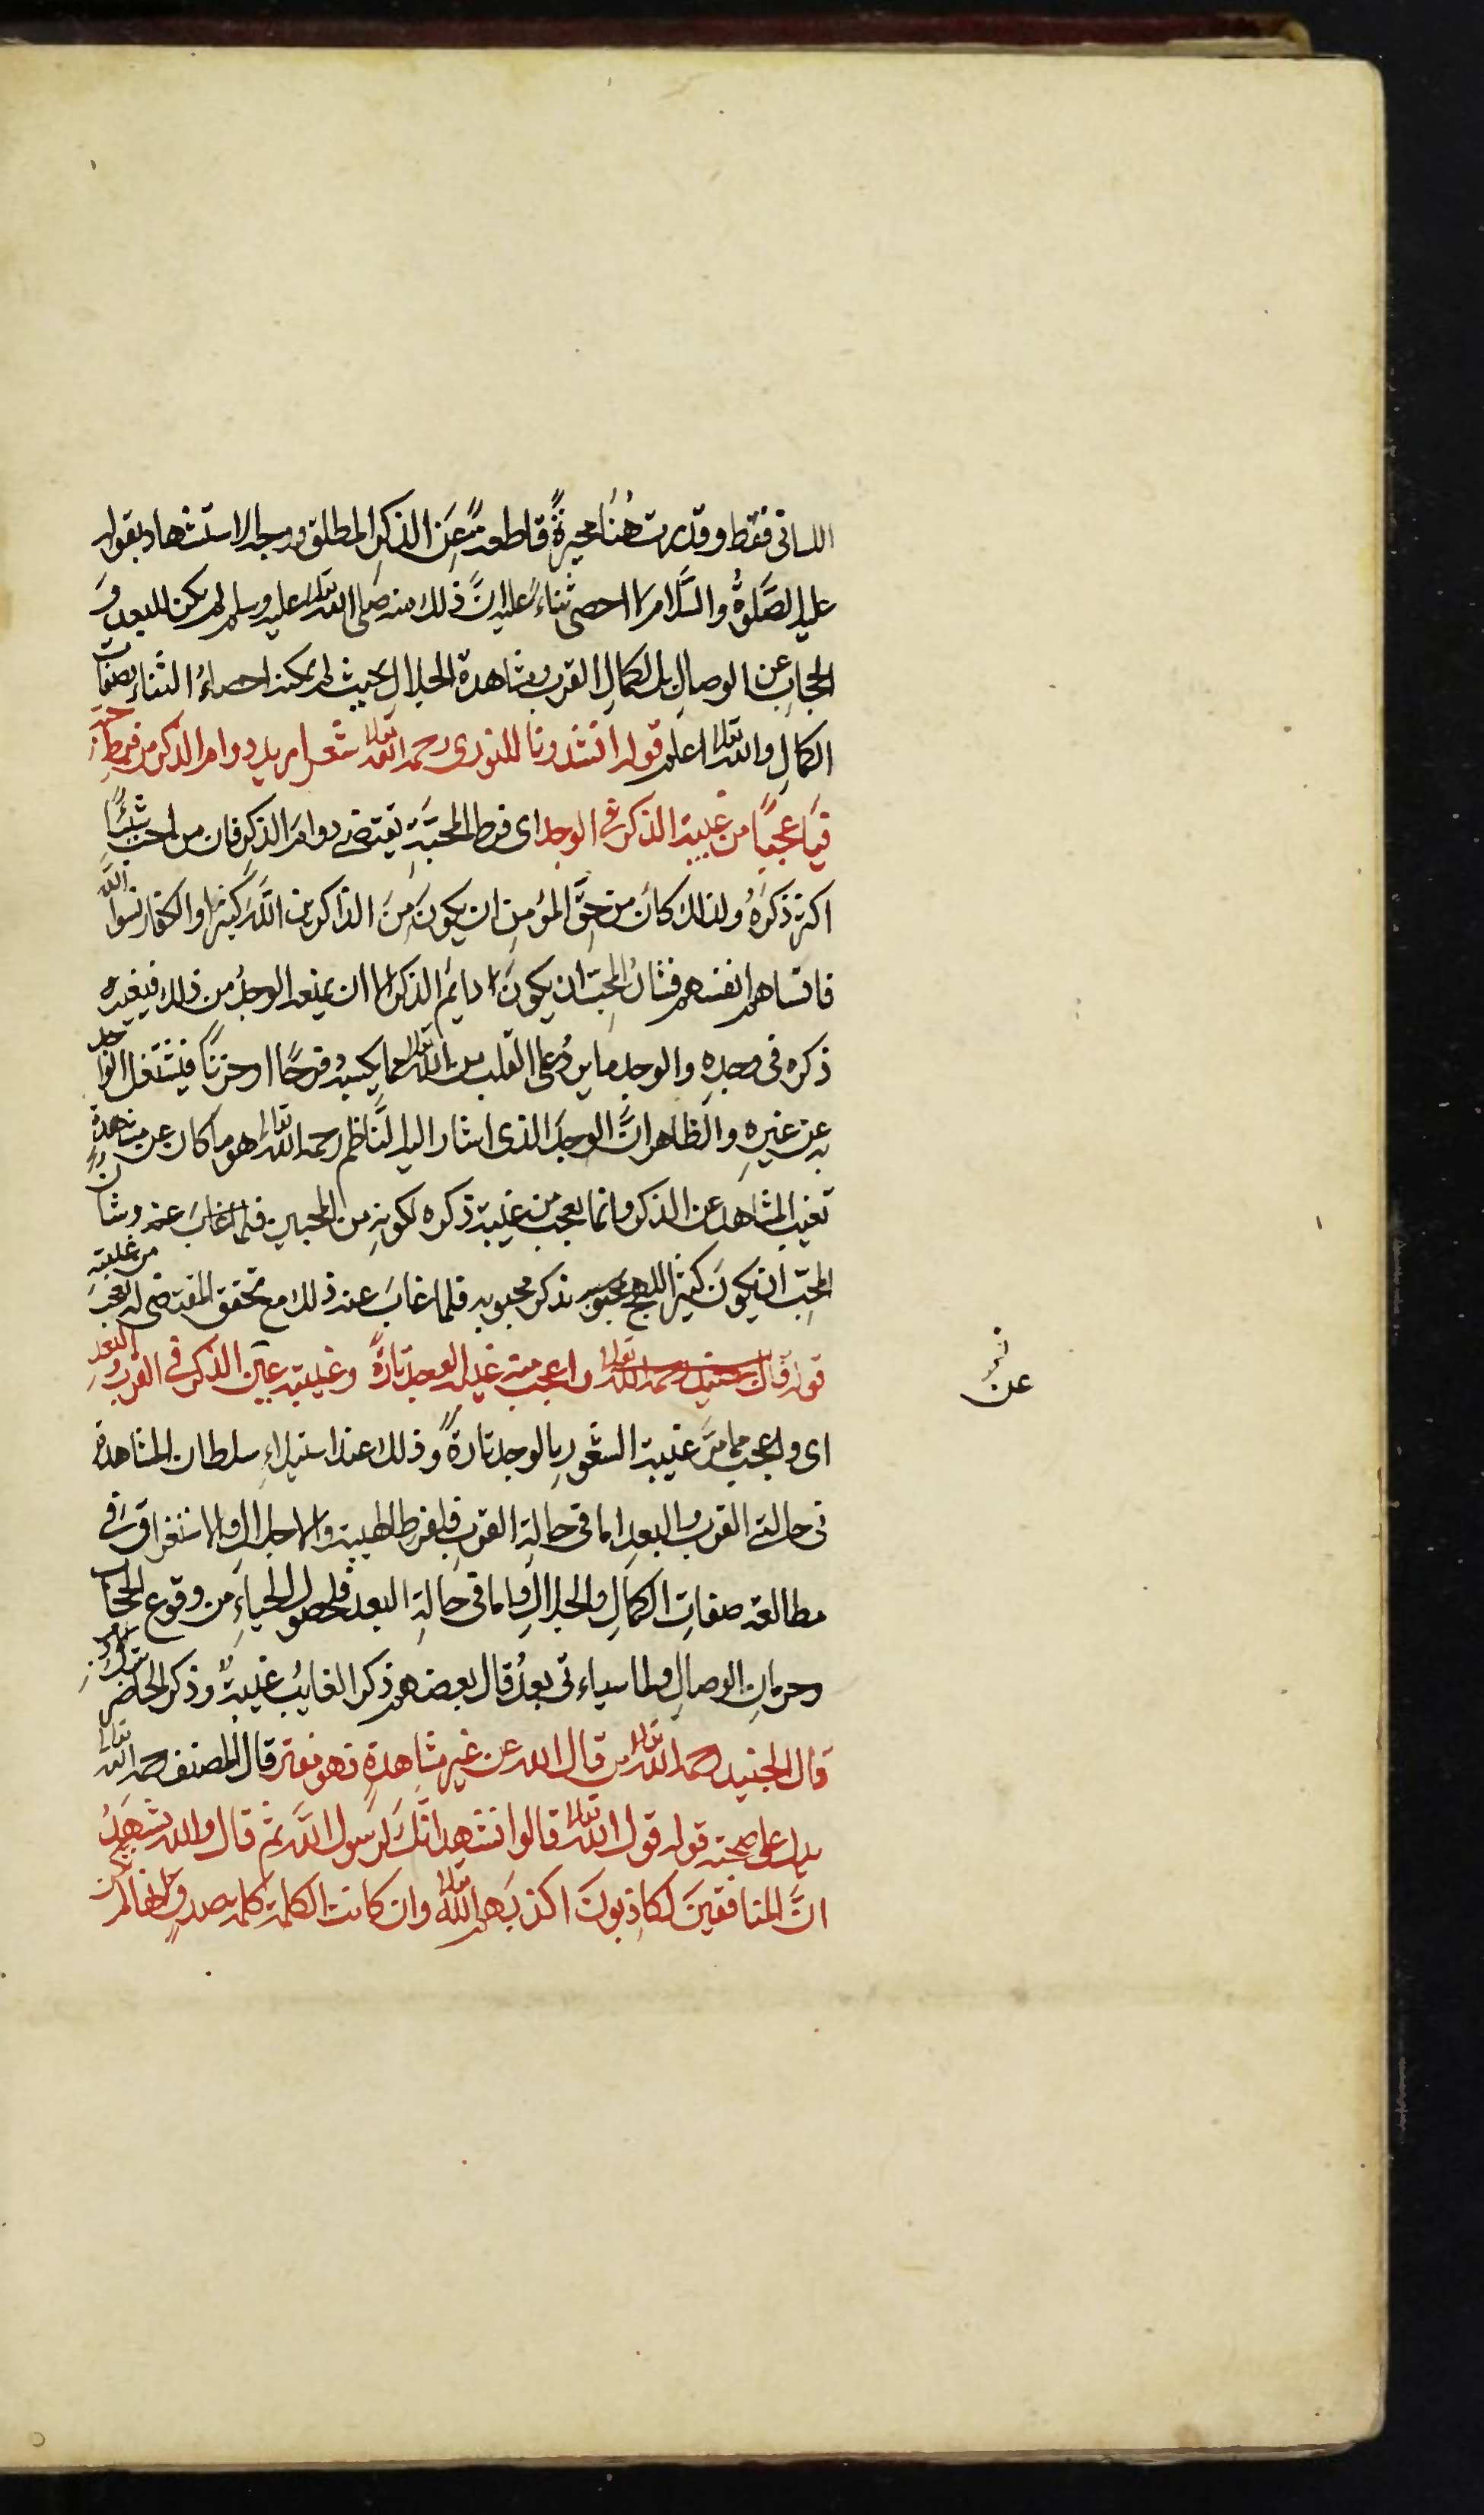 اللسانى فقط وقد يرث هنا محيرةً قاطعةً عن الذكر المطلق ووجه الاستشهاد بقوله
عليه الصلوة والسلام لا احصى ثناءً عليك انّ ذلك منه صلى الله تعالى عليه وسلم لم يكن للبعد وَ
الحجاب عن الوصال بل لكمال القرب ومشاهدة الجلال بحيث لم يمكنه احصاءُ الثناء بصفات
الكمال والله تعالى اعلم قوله انشدونا للنورى رحمه الله تعالى شعر اريد دوام الذكر من فرط حبه
فيا عجبًا من غيبة الذكر فى الوجد اى فرط المحبّةِ يقتضى دوامَ الذكرِ فان من احبّ شيئًا
اكثر ذكرَهُ ولذلك كانَ من حقّ المؤمنِ ان يكونَ مِنَ الذاكرين اللّهَ كثيرًا والكفار نسوا اللّهَ
فانساهم انفسهم فشانُ المحبّ ان يكونَ دايمَ الذكر الا ان يمنعه الوجدُ من ذلك فيغيب
ذكره فى وجدِهِ والوجد ما يردُ على القلب من اللّه تعالى مما يكسبه فرحًا او حزنًا فيشتغل الواجد
به عن غيرِهِ والظاهر انّ الوجدَ الذى اشار اليه النّاظم رحمه اللّه تعالى هو ما كان عن مشاهدةٍ
تغيب المشاهد عن الذكر وانما يعجب من غيبة ذكره لكونهِ من المحبين فلما غابَ عنه وشانُ
المحبّ ان يكونَ كثير اللهج بذكر محبوبه فلما غابَ عنه ذلك مع تحقق المقتضى له تعجبَ من غيبته
قوله واعجب منه غيبة الوجد تارةً وغيبة عين الذكر فى القرب والبعد
اى واعجب مما مرّ غيبة الشعور بالوجد تارةً وذلك عند استيلاءِ سلطان المشاهدة
فى حالتى القرب والبعد اما فى حالة القرب فلفرط الهيبة والاجلال والاستغراق فى
مطالعة صفات الكمالِ والجلالِ واما فى حالةِ البعد فلحصول الحياءِ من وقوع الحجاب
وحرمانِ الوصالِ ولما سياءتى بعدُ قال بعضهم ذكر الغايب غيبةٌ وذكر الحاضر
قال الجنيد رحمه اللّه تعالى من قال الله عن غير مشاهدةٍ فهو مفتر قال المصنف رحمه اللّه تعالى
يدل على صحته قوله قول اللّه تعالى قالوا نشهد انّكَ لرسول اللّه ثم قال والله يشهَدُ
انّ المنافقينَ لكاذِبونَ اكذبَهم اللّه تعالى وان كانت الكلمة كلمة صدقٍ لانها لم تكن
عن